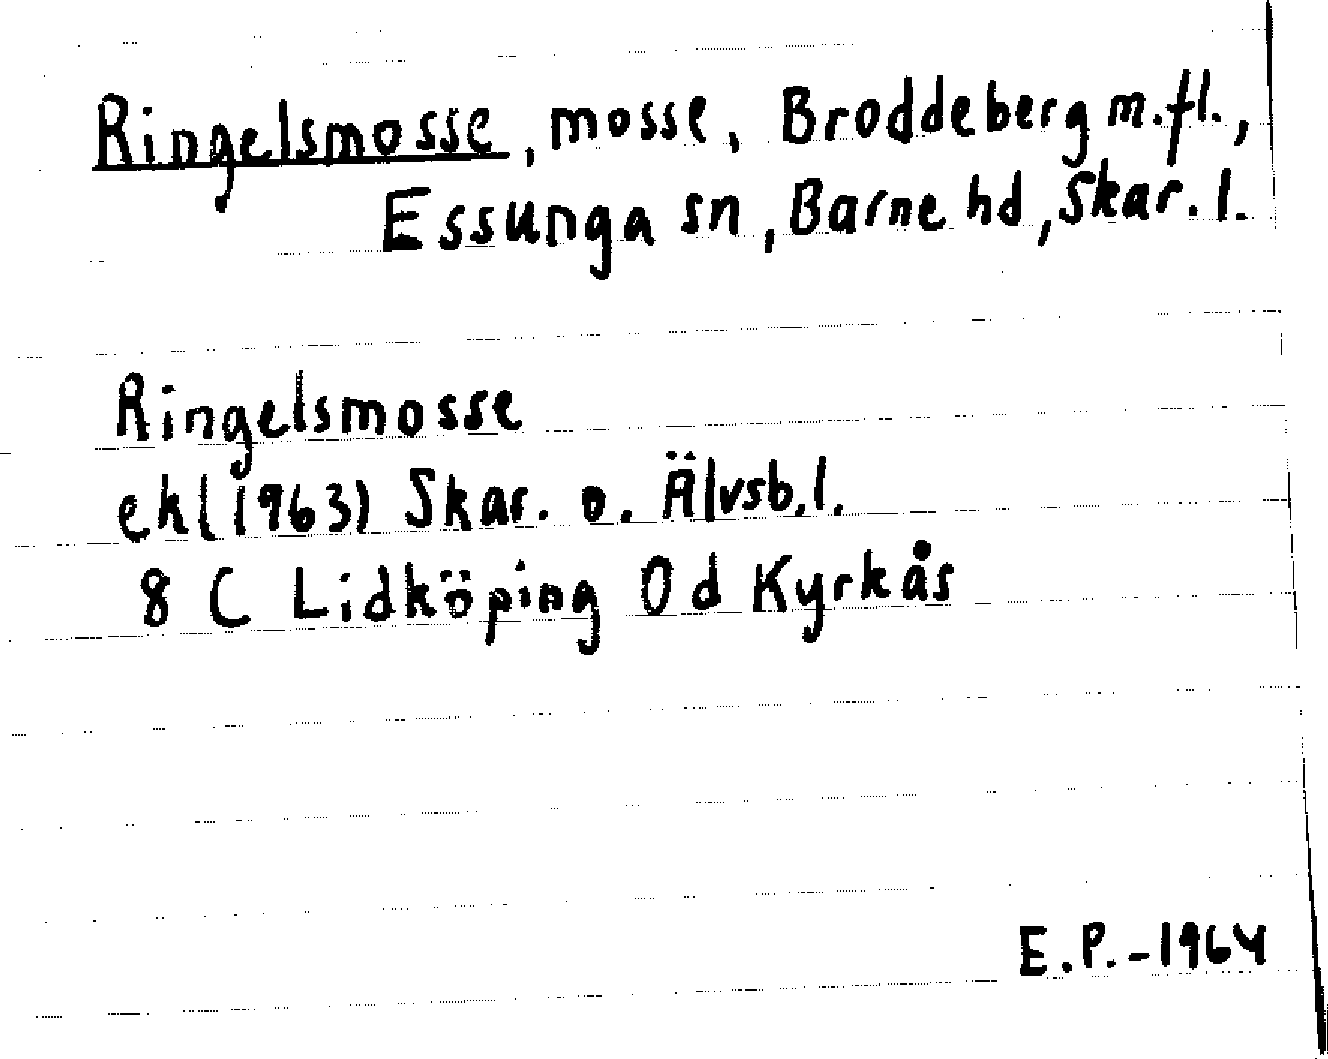 Ringelsmosse, mosse, Broddeberg m.fl.,
Essunga sn, Barne hd, Skar. l.
Ringelsmosse
ekl (1963) Skar. o. Älvsb. l.
8 C Lidköping 0 d Kyrkås
E.P. - 1964